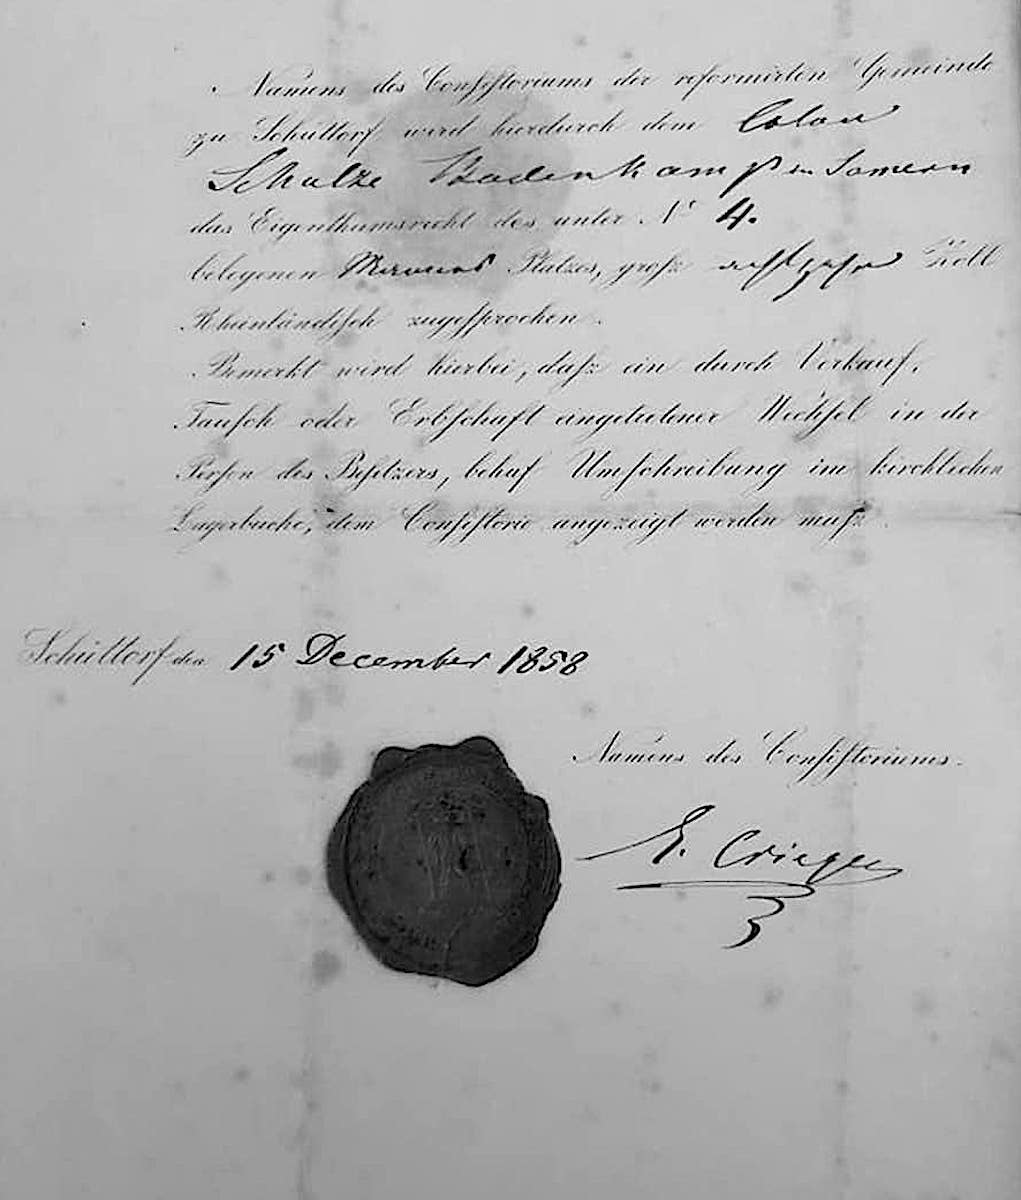 Namens des Consistoriums der reformirten Gemeinde
zu Schüttorf wird hierdurch dem Colon
Schulze Badenkamp in Samern
das Eigenthumsrecht des unter Nr 4.
belegenen Platzes, groß achtzehn Zoll
Rheinländisch zugesprochen.
Bemerkt wird hierbei, daß ein durch Verkauf,
Tausch oder Erbschaft eingetretener Wechsel in der
Person des Besitzers, behuf Umschreibung im kirchlichen
Lagerbuche, dem Consistorio angezeigt werden muß.
Schüttorf den 15 December 1858
Namens des Consistoriums.
E. Criegee